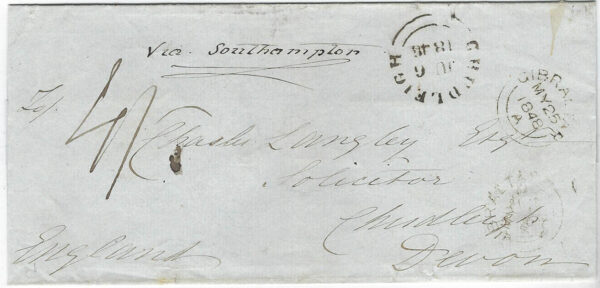 Via Southampton
CHUDLEIGH
JU 6
1848
GIBRAL
MY 25
1848
A
4/
Charles Langley Esq
Solicitor
Chudleigh
England
Devon